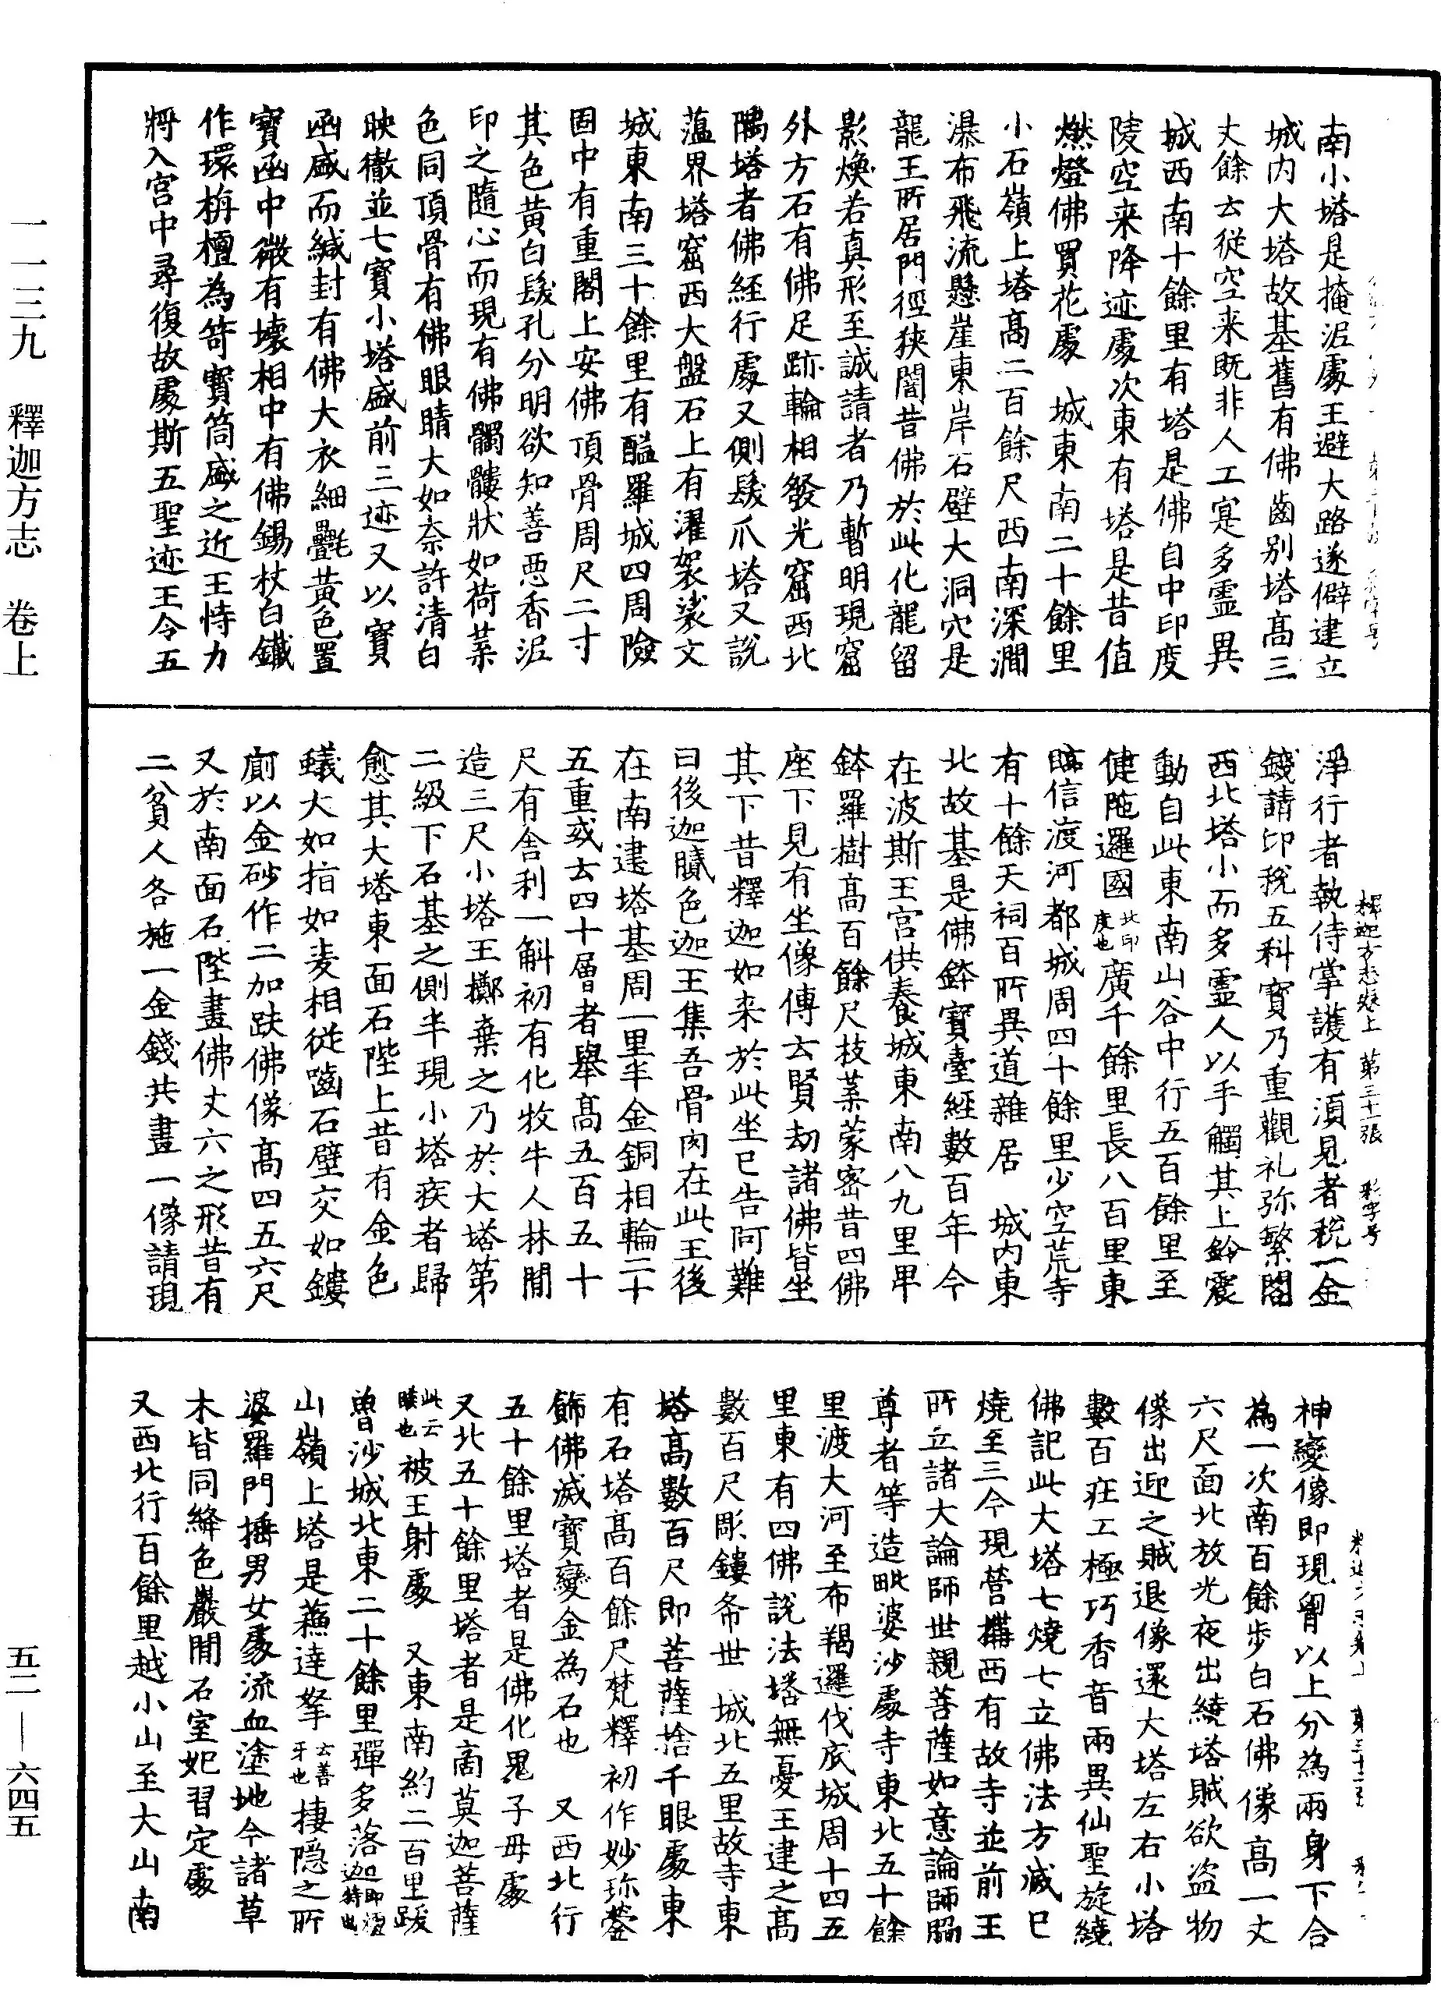 一一三九　釋迦方志　卷上
南小塔是掩泥處王避大路遂僻建立
城内大塔故基舊有佛齒别塔高三
丈餘云從空来既非人工寔多靈異
城西南十餘里有塔是佛自中印度
陵空来降迹處次東有塔是昔值
燃燈佛買花處　城東南二十餘里
小石嶺上塔髙二百餘尺西南深澗
瀑布飛流懸崖東岸石壁大洞穴是
龍王所居門徑狹闇昔佛於此化龍留
影煥若真形至誠請者乃暫明現窟
外方石有佛足跡輪相發光窟西北
隅塔者佛經行處又側髮爪塔又說
薀界塔窟西大盤石上有濯袈裟文
城東南三十餘里有醯羅城四周險
固中有重閣上安佛頂骨周尺二寸
其色黄白髮孔分明欲知善惡香泥
印之隨心而現有佛髑髏狀如荷葉
色同頂骨有佛眼睛大如柰許清白
映徹並七寶小塔盛前三迹又以寶
函盛而緘封有佛大衣細㲲黄色置
寶函中微有壞相中有佛錫杖白鐵
作環栴檀為笴寶筒盛之近王恃力
将入宫中尋復故處斯五聖迹王令五
淨行者執侍掌護有湏見者稅一金
錢請印稅五科寶乃重觀礼弥繁閣
西北塔小而多靈人以手觸其上鈴震
動自此東南山谷中行五百餘里至
健陁邏國北印度也廣千餘里長八百里東
臨信渡河都城周四十餘里少空荒寺
有十餘天祠百所異道雜居　城内東
北故基是佛鉢寶臺經數百年今
在波斯王宫供養城東南八九里卑
鉢羅樹高百餘尺枝葉蒙密昔四佛
座下見有坐像傳云賢劫諸佛皆坐
其下昔釋迦如来於此坐已告阿難
曰後迦膩色迦王集吾骨肉在此王後
在南建塔基周一里半金銅相輪二十
五重或云四十層者舉高五百五十
尺有舍利一斛初有化牧牛人林間
造三尺小塔王擲棄之乃於大塔第
二級下石基之側半現小塔疾者歸
愈其大塔東面石陛上昔有金色
蟻大如指如麦相從嚙石壁文如鏤
廁以金砂作二加趺佛像高四五六尺
又於南面石陛畫佛丈六之形昔有
二貧人各施一金錢共畫一像請現
釋迦方志卷上　第三十一張　彩字号
神變像即現胷以上分為兩身下合
為一次南百餘步白石佛像高一丈
六尺面北放光夜出繞塔賊欲盜物
像出迎之賊退像還大塔左右小塔
數百在工極巧香音兩異仙聖旋繞
佛記此大塔七燒七立佛法方滅已
燒至三今現營搆西有故寺並前王
所立諸大論師世親菩薩如意論師脇
尊者等造毗婆沙處寺東北五十餘
里渡大河至布羯邏伐底城周十四五
里東有四佛說法塔無憂王建之高
數百尺彫鏤希世　城北五里故寺東
塔高數百尺即菩薩捨千眼處東
有石塔高百餘尺梵釋初作妙珎瑩
飾佛滅寶變金為石也　又西北行
五十餘里塔者是佛化鬼子母處
又北五十餘里塔者是商莫迦菩薩
此云睒也被王射處　又東南約二百里跋
曽沙城北東二十餘里彈多落迦即檀特也
山嶺上塔是蘓達拏云善牙也棲隱之所
婆羅門捶男女處流血塗地今諸草
木皆同絳色巖間石室妃習定處
又西北行百餘里越小山至大山南
五二—六四五